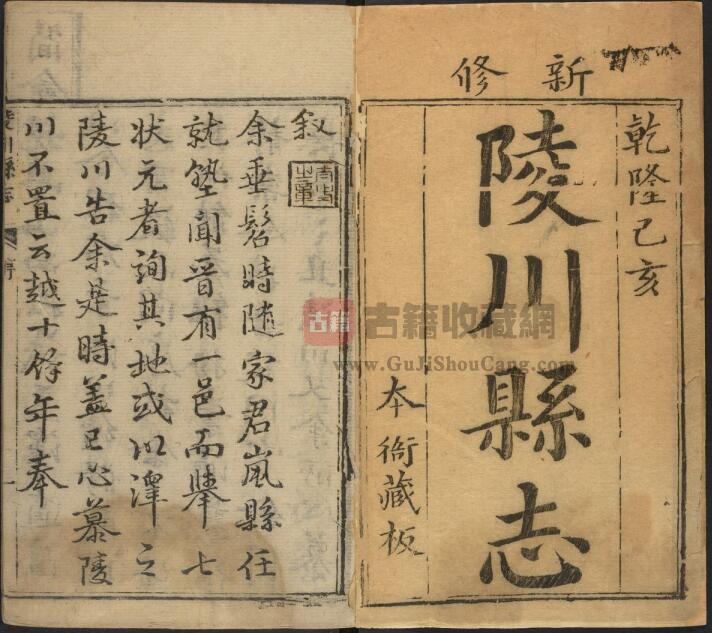 新修
乾隆己亥
陵川縣志
本衙藏板
叙
余垂髫時随家君嵐縣任
就塾聞晋有一邑而舉七
状元者詢其地或以澤之
陵川告余是時盖已心慕陵
川不置云越十餘年奉
陵川縣志
序
古籍
古籍收藏網
www.GuJiShouCang.com